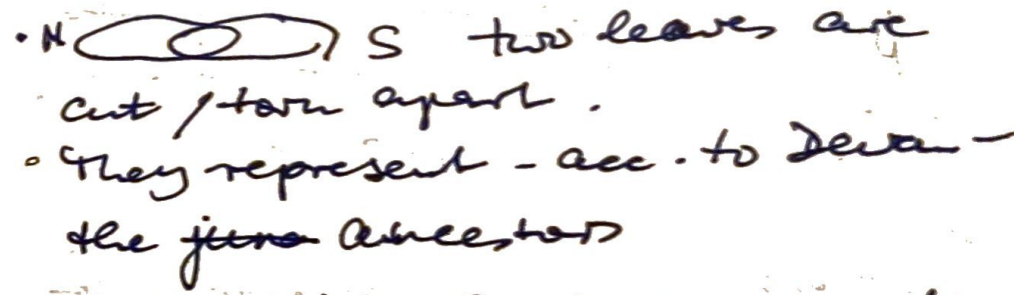 • N S two leaves are
cut / torn apart.
• They represent - acc. to Dewan -
the ancestors